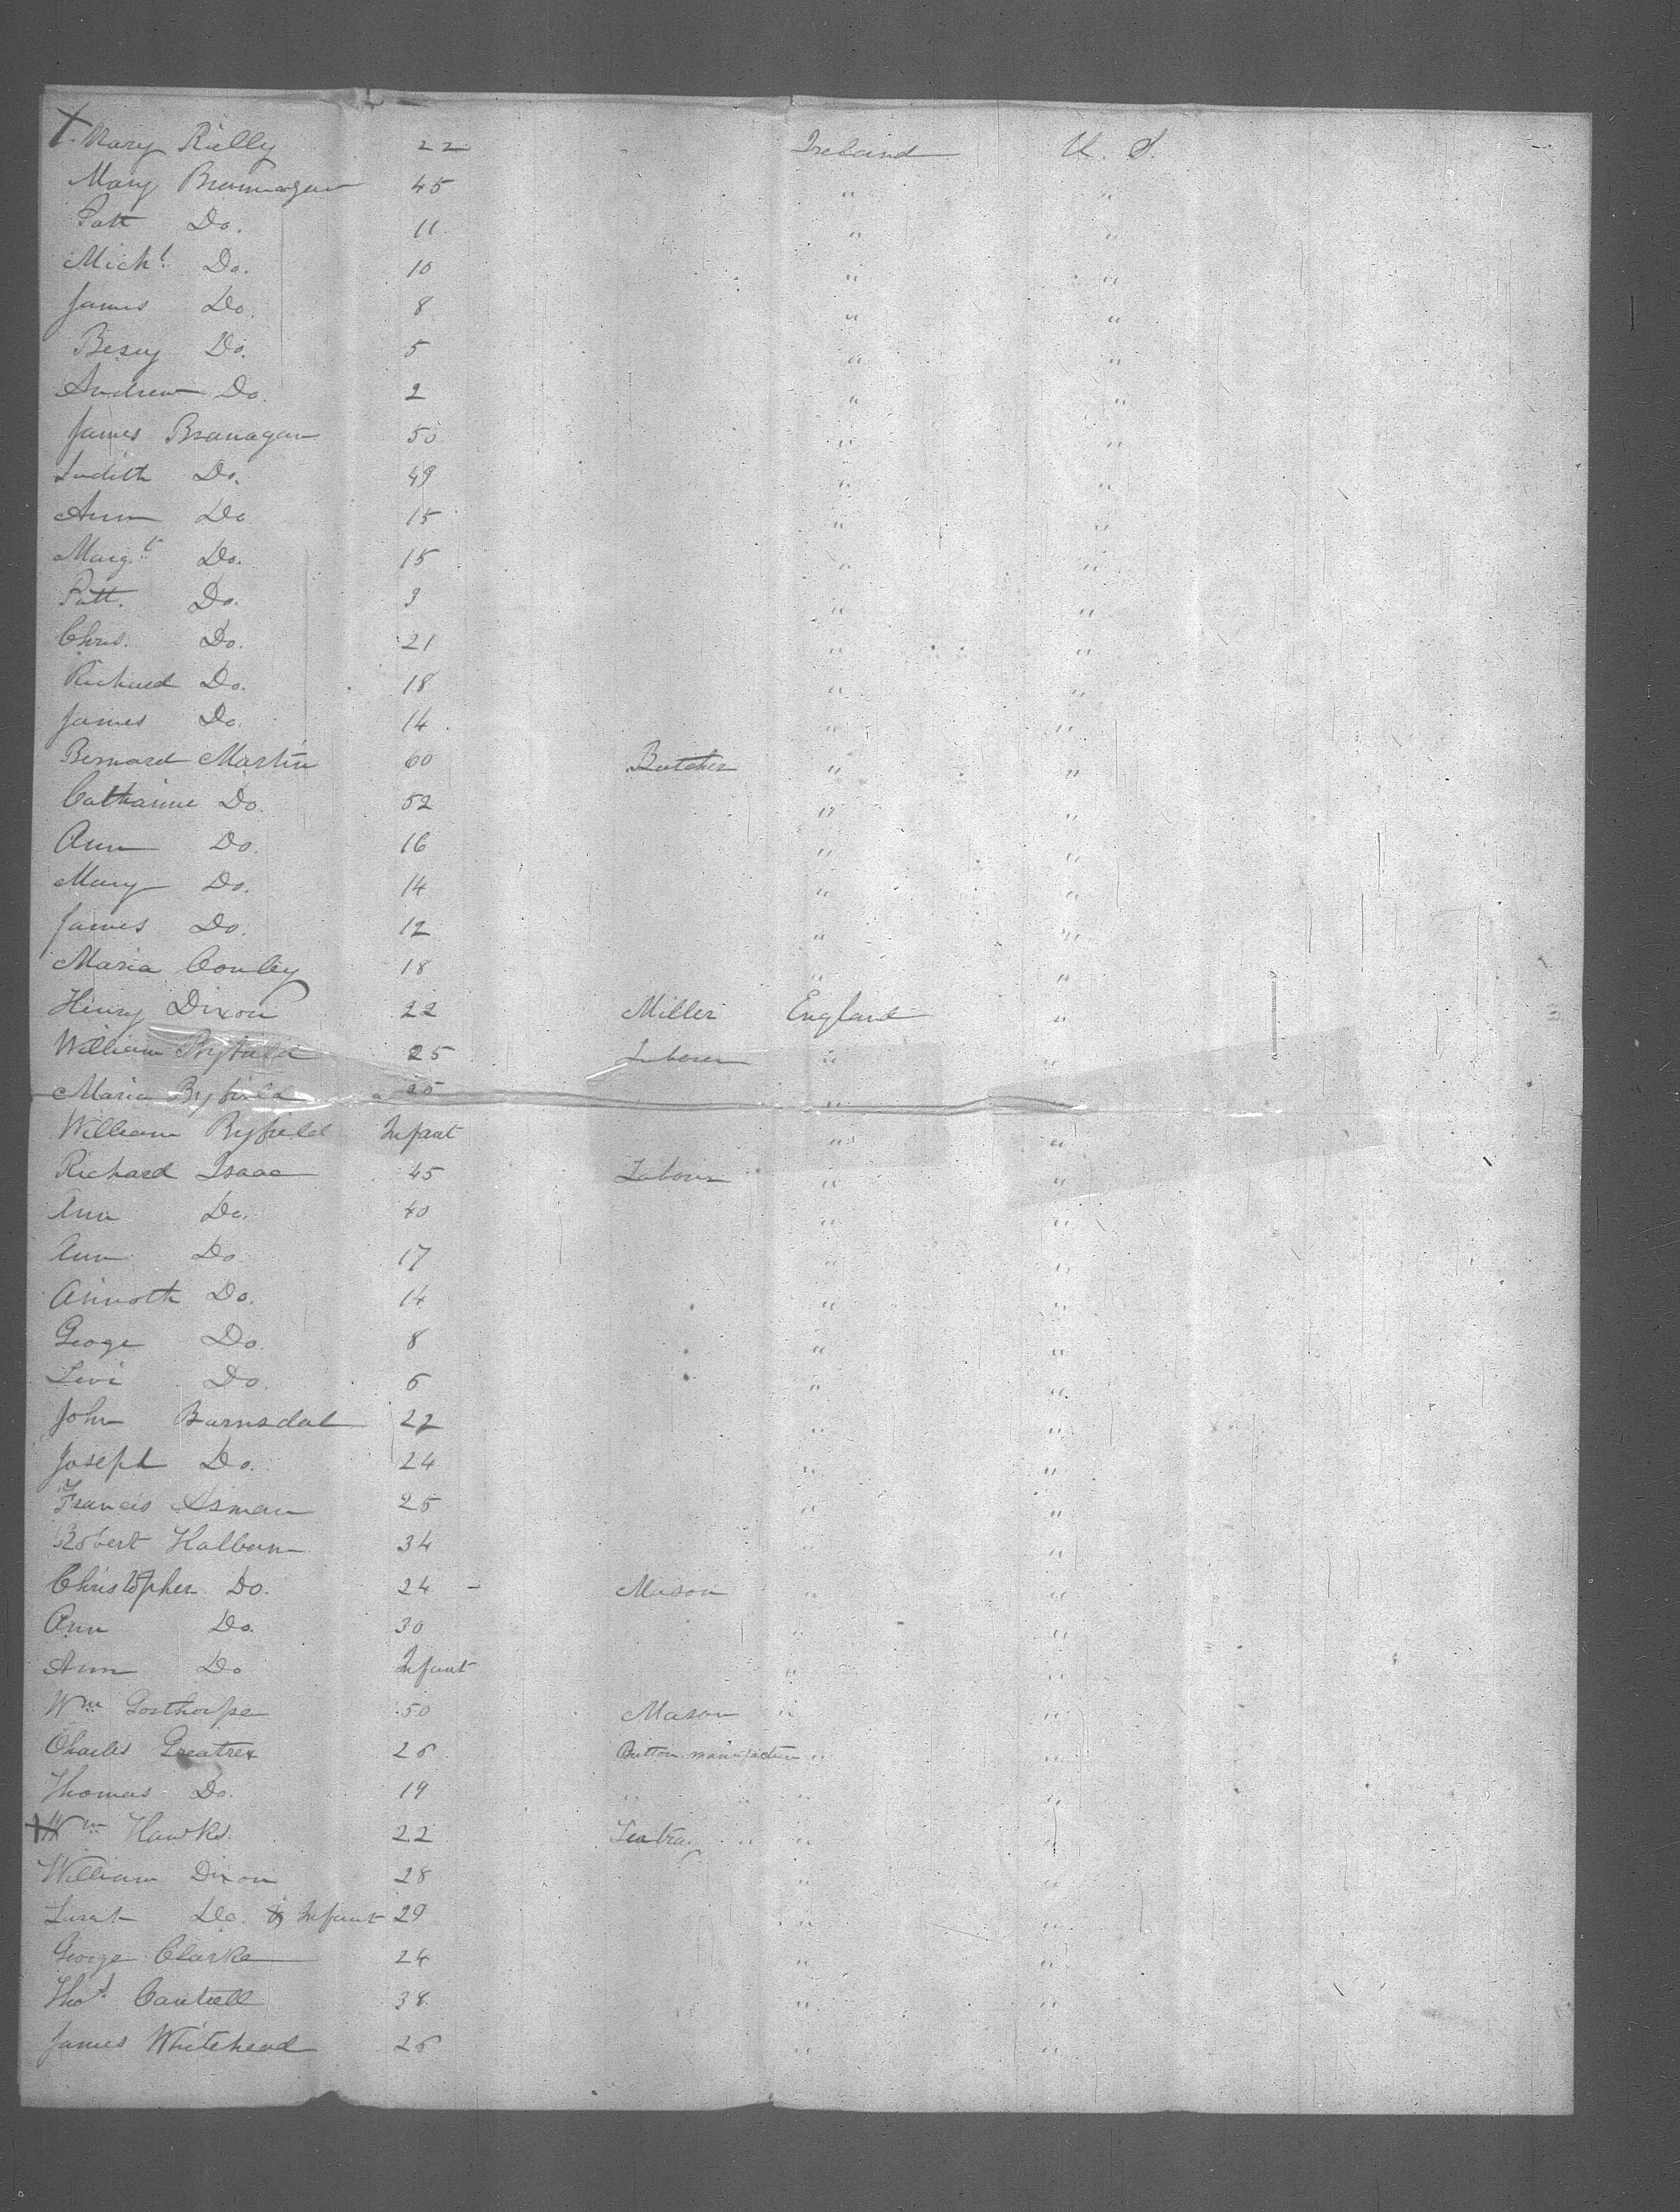 X Mary Rielly 22 Ireland U. S.
Mary Brannagan 45 " "
Patt Do. 11 " "
Michl. Do. 10 " "
James Do. 8 " "
Besey Do. 5 " "
Andrew Do. 2 " "
James Branagan 50 " "
Judith Do. 49 " "
Ann Do 15 " "
Margt. Do. 15 " "
Patt. Do. 3 " "
Chris. Do. 21 " "
Richard Do. 18 " "
James Do. 14 " "
Bernard Martin 60 Butcher " "
Catharine Do. 52 " "
Ann Do. 16 " "
Mary Do. 14 " "
James Do. 12 " "
Maria Conley 18 " "
Henry Dixon 22 Miller England "
William Byfield 25 Laborer " "
Maria Byfield "
William Byfield Infant " "
Richard Isaac 45 Laborer " "
Ann Do. 40 " "
Ann Do 17 "
Do. 14 " "
George Do. 8 " "
Levi Do 6 " "
John Barnsdal 22 " "
Joseph Do. 24 " "
Francis Asman 25 " "
Robert Halborn 34 " "
Christopher Do. 24 - Mason " "
Ann Do. 30 " "
Ann Do Infant " "
Wm Gosthorpe 50 Mason " "
Charles Greatrex 26 Button manufacture " "
Thomas Do. 19 " " "
X Wm Hawks 22 Tea tray " " "
William Dixon 28 " "
Do. & Infant 29 " "
George Clarke 24 " "
Thos Cantrell 38 " "
James Whitehead 26 " "